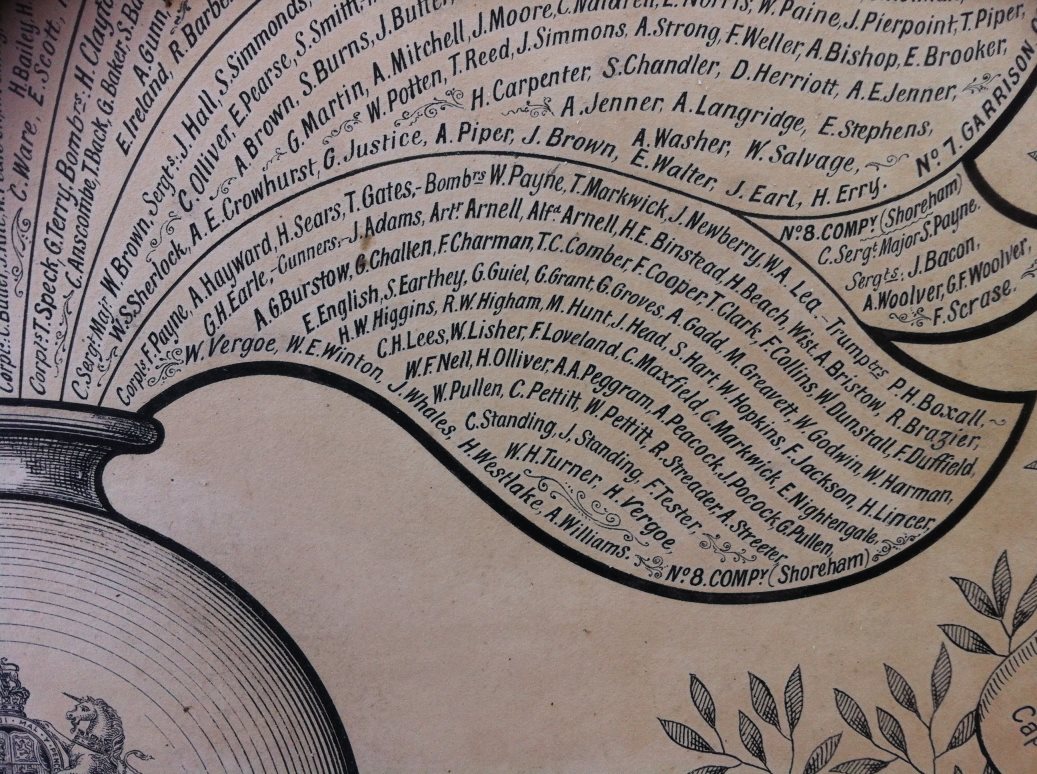 H. Bailey, H.
C. Ware, E. Scott,
Corpls: T. Speck, G. Terry, Bombrs: H. Clayt
C. Anscombe, T. Back, G. Baker, S. B
E. Ireland, A. Gunn,
R. Barbo
C. Sergt: Majr W. Brown, Sergts: J. Hall, S. Simmonds,
W. S. Sherlock, C. Olliver, E. Pearse, S. Smith,
A. Brown, S. Burns, J. Butler,
A. E. Crowhurst, G. Martin, A. Mitchell, J. Moore, E. Norris, W. Paine, J. Pierpoint, T. Piper,
W. Potten, T. Reed, J. Simmons, A. Strong, F. Weller, A. Bishop, E. Brooker,
G. Justice, H. Carpenter, S. Chandler, D. Herriott, A. E. Jenner,
A. Piper, A. Jenner, A. Langridge, E. Stephens,
J. Brown, A. Washer, W. Salvage,
E. Walter, J. Earl, H. Erry.
No. 7. GARRISON
Corpls F. Payne, A. Hayward, H. Sears, T. Gates,- Bombrs W. Payne, T. Markwick, J. Newberry, W. A. Lea.- Trumptrs P. H. Boxall,
G. H. Earle,-Gunners:- J. Adams, Arthr Arnell, Alfd Arnell, H. E. Binstead, H. Beach, Wm A. Bristow, R. Brazier,
A. G. Burstow, G. Challen, F. Charman, T. C. Comber, F. Cooper, T. Clark, F. Collins, W. Dunstall, F. Duffield,
E. English, S. Earthey, G. Guiel, G. Grant, G. Groves, A. Gadd, M. Greavett, W. Godwin, W. Harman,
H. W. Higgins, R. W. Higham, M. Hunt, J. Head, S. Hart, W. Hopkins, F. Jackson, H. Lincer,
C. H. Lees, W. Lisher, F. Loveland, C. Maxfield, C. Markwick, E. Nightengale,
W. F. Nell, H. Olliver, A. A. Peggram, A. Peacock, J. Pocock, G. Pullen,
W. Pullen, C. Pettitt, W. Pettitt, R. Stredder, A. Streeter,
C. Standing, J. Standing, F. Tester,
W. H. Turner, H. Vergoe,
W. Vergoe, W. E. Winton, J. Whales, H. Westlake, A. Williams.
No. 8. COMPY (Shoreham)
No. 8. COMPY (Shoreham)
C. Sergt Major S. Payne.
Sergts: J. Bacon,
A. Woolver, G. F. Woolver,
F. Scrase.